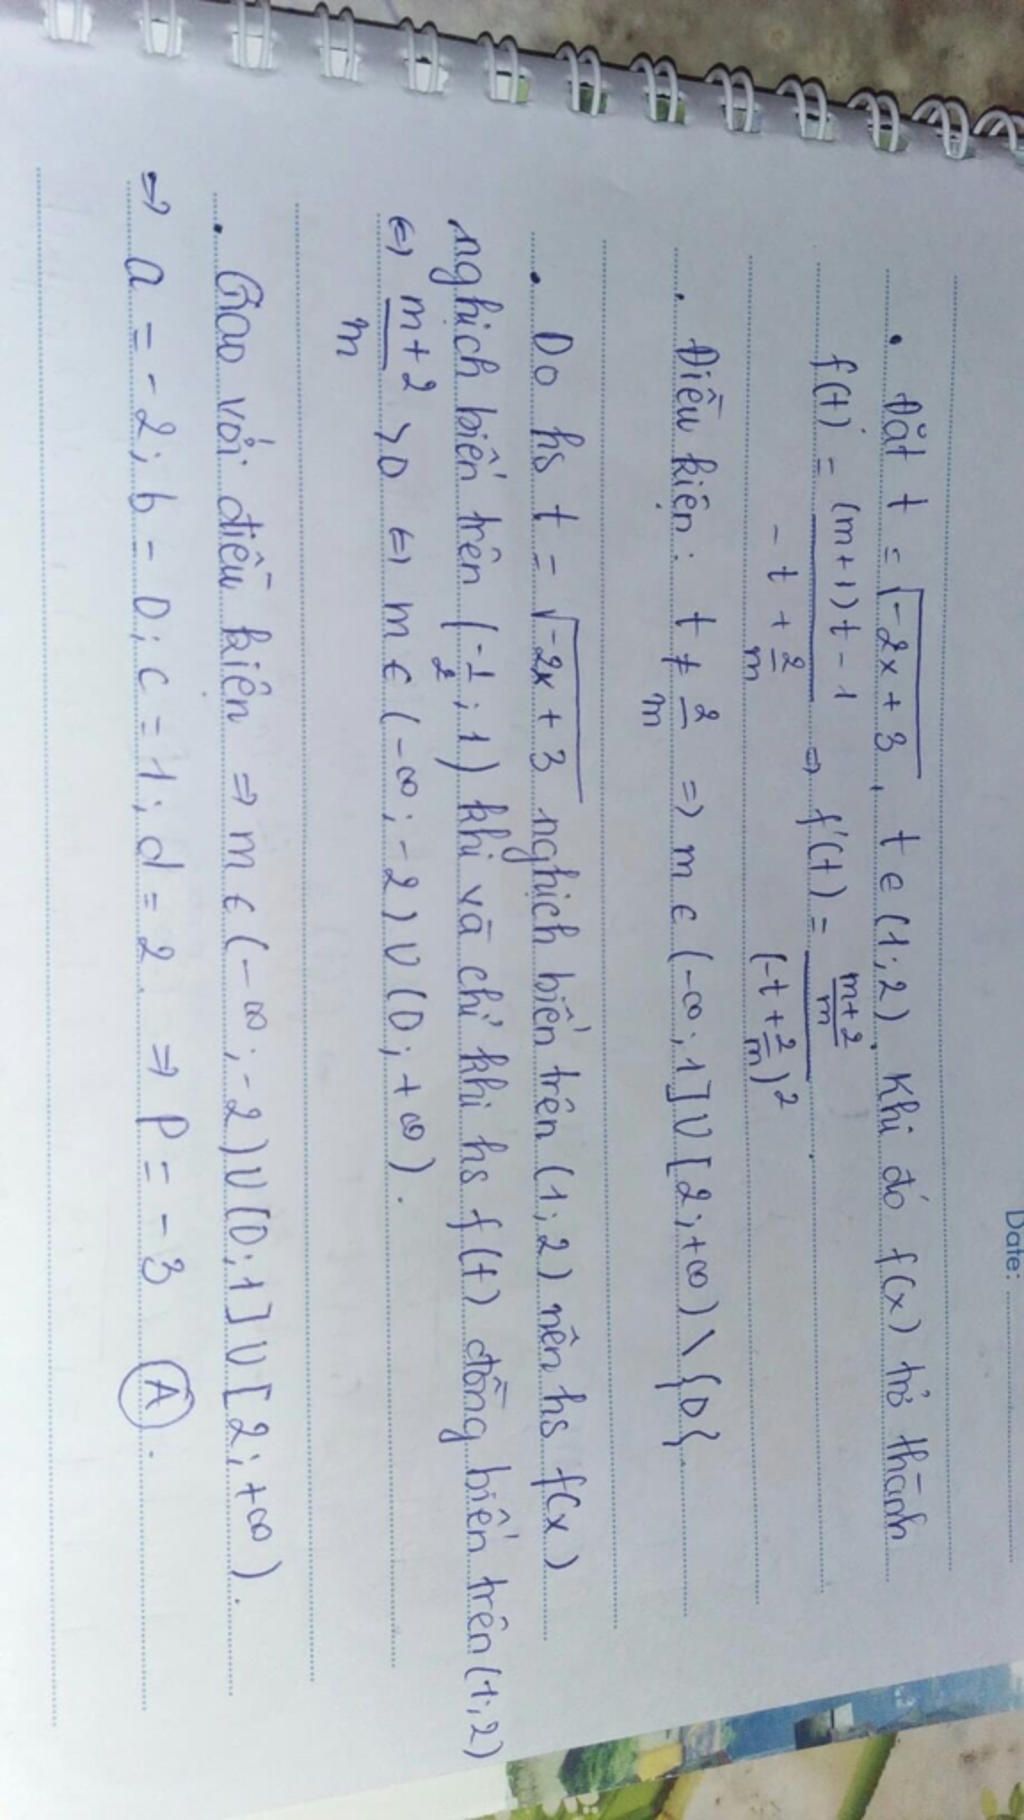 Date:
. Đặt t = √(-2x+3), t ∈ (1;2). Khi đó f(x) trở thành
f(t) = ((m+1)t - 1)/(-t + 2/m) ⇒ f'(t) = ((m+2)/m)/(-t + 2/m)²
. Điều kiện: t ≠ 2/m ⇒ m ∈ (-∞; 1] ∪ [2; +∞) \ {0}
. Do hs t = √(-2x+3) nghịch biến trên (1;2) nên hs f(x)
nghịch biến trên (-1/2; 1) khi và chỉ khi hs f(t) đồng biến trên (1;2)
⇔ (m+2)/m > 0 ⇔ m ∈ (-∞; -2) ∪ (0; +∞).
. Giao với điều kiện ⇒ m ∈ (-∞; -2) ∪ (0; 1] ∪ [2; +∞).
⇒ a = -2; b = 0; c = 1; d = 2 ⇒ P = -3 (A).